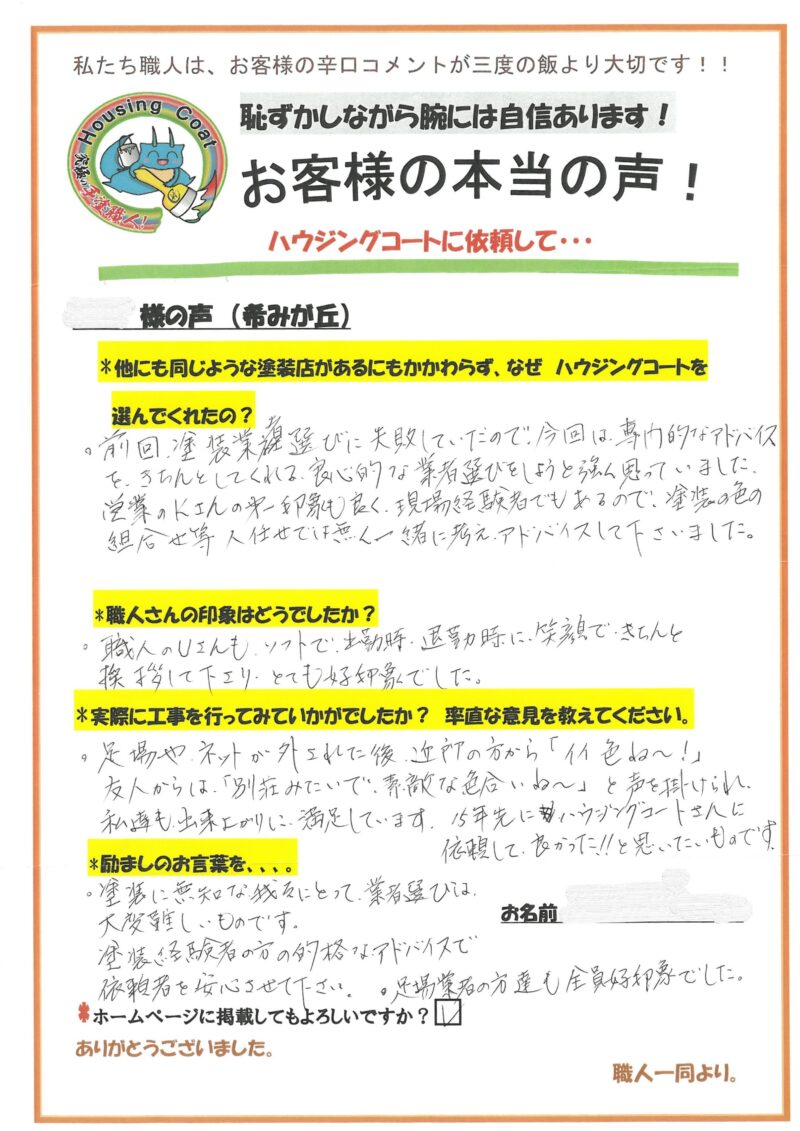 私たち職人は、お客様の辛口コメントが三度の飯より大切です！！
Housing Coat
恥ずかしながら腕には自信あります！
お客様の本当の声！
ハウジングコートに依頼して・・・
様の声（希みが丘）
*他にも同じような塗装店があるにもかかわらず、なぜ ハウジングコートを
選んでくれたの？
。前回、塗装業者選びに失敗していたので、今回は、専門的なアドバイス
を、きちんとしてくれる、良心的な業者選びをしようと強く思っていました。
営業のKさんの第一印象も良く、現場経験者でもあるので、塗装の色の
組合せ等人任せでは無く一緒に考え、アドバイスして下さいました。
*職人さんの印象はどうでしたか？
。職人のUさんも、ソフトで、出勤時、退勤時に、笑顔で、きちんと
挨拶して下さり、とても好印象でした。
*実際に工事を行ってみていかがでしたか？ 率直な意見を教えてください。
。足場や、ネットが外された後、近所の方から「イイ色ね〜！」
友人からは、「別荘みたいで、素敵な色合いね〜」と声を掛けられ、
私達も、出来上がりに、満足しています。15年先に、ハウジングコートさんに
依頼して、良かった!!と思いたいものです。
*励ましのお言葉を、、、。
。塗装に無知な我々にとって、業者選びは、
大変難しいものです。
お名前
塗装経験者の方の的格なアドバイスで
依頼者を安心させて下さい。 。足場業者の方達も全員好印象でした。
*ホームページに掲載してもよろしいですか？
ありがとうございました。
職人一同より。